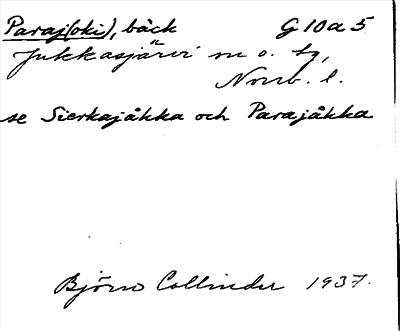 Paraj(oki), bäck G 10 a 5
Jukkasjärvi sn o. tg,
Norrb. l.
se Sierkajåkka och Parajåkka
Björn Collinder 1937.